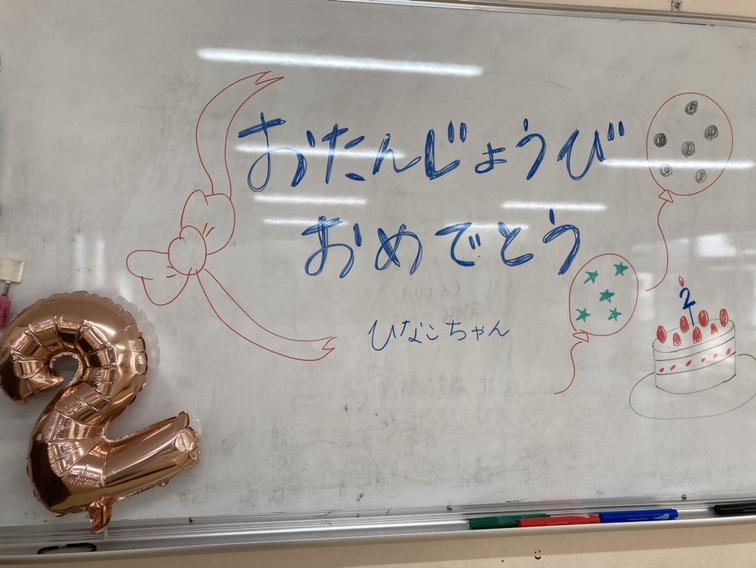 おたんじょうび
おめでとう
ひなこちゃん
2
2